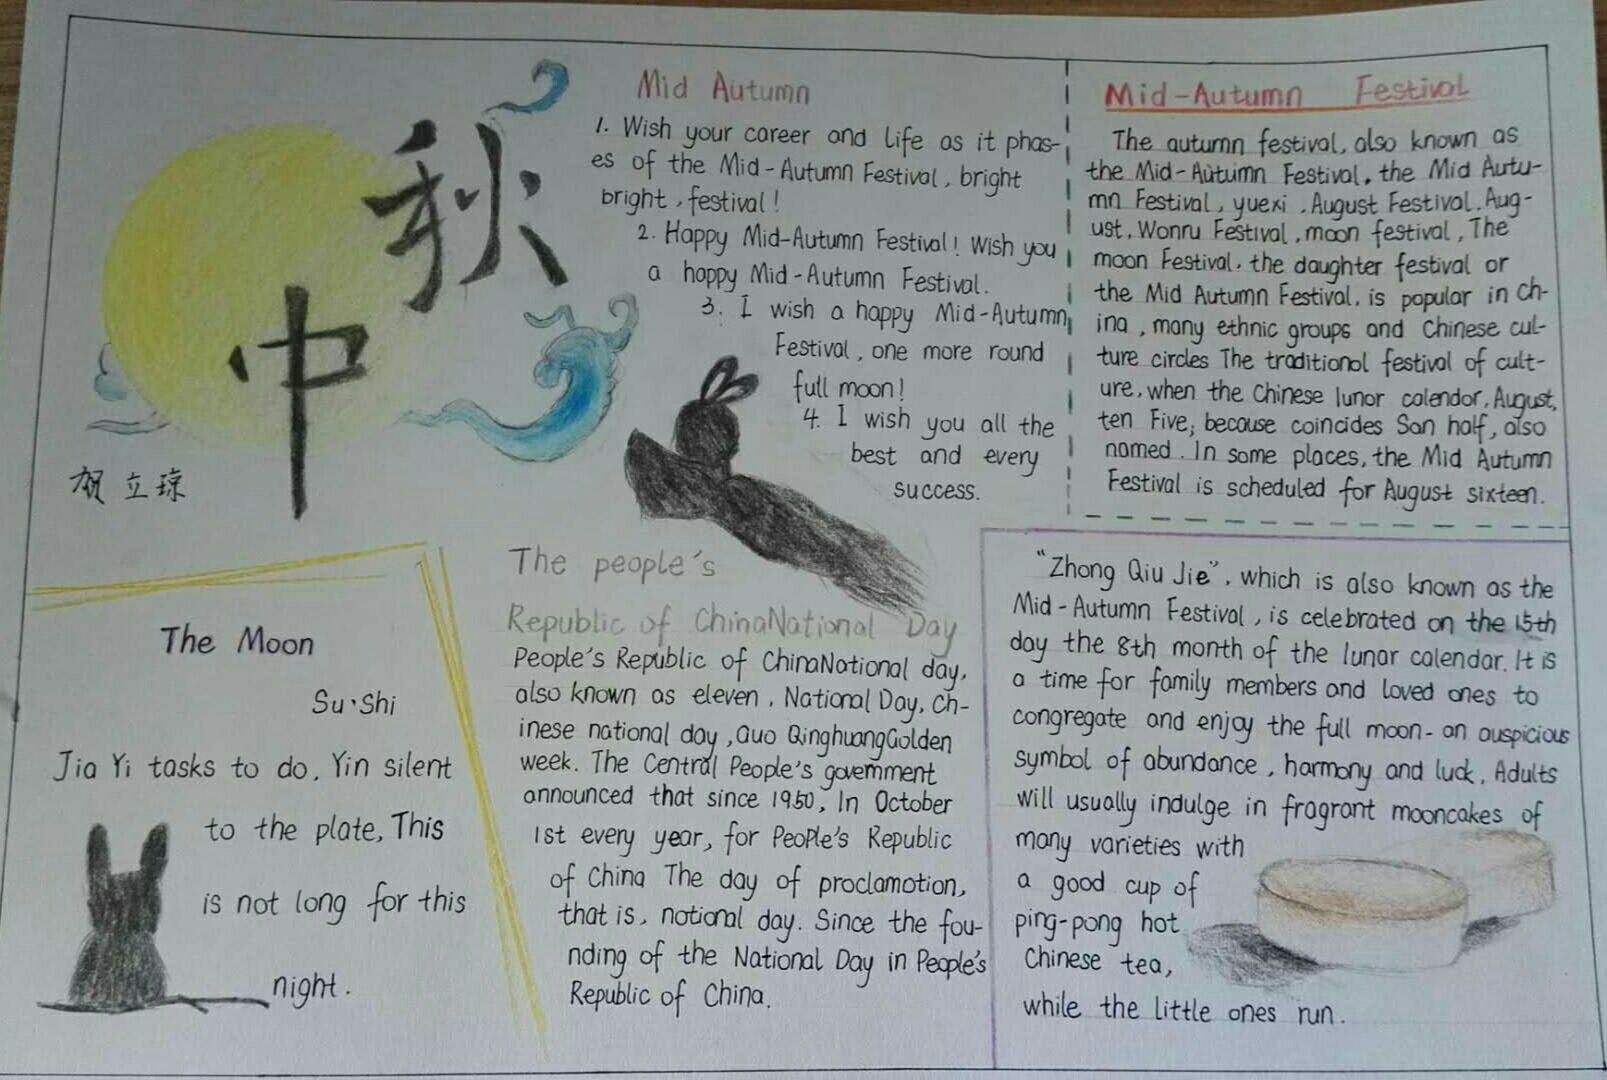 中秋
贺立琼
Mid Autumn
1. Wish your career and life as it phas-
es of the Mid-Autumn Festival, bright
bright, festival!
2. Happy Mid-Autumn Festival! Wish you
a happy Mid-Autumn Festival.
3. I wish a happy Mid-Autumn
Festival, one more round
full moon!
4. I wish you all the
best and every
success.
Mid-Autumn Festival
The autumn festival, also known as
the Mid-Autumn Festival, the Mid Autu-
mn Festival, yuexi, August Festival. Aug-
ust, Wonru Festival, moon festival, The
moon Festival, the daughter festival or
the Mid Autumn Festival, is popular in Ch-
ina, many ethnic groups and Chinese cul-
ture circles The traditional festival of cult-
ure, when the Chinese lunar calendor, August,
ten Five; because coincides San half, also
named. In some places, the Mid Autumn
Festival is scheduled for August sixteen.
The Moon
Su·Shi
Jia Yi tasks to do, Yin silent
to the plate, This
is not long for this
night.
The people's
Republic of ChinaNational Day
People's Republic of ChinaNational day,
also known as eleven, National Day, Ch-
inese national day, Guo QinghuangGolden
week. The Central People's govemment
announced that since 1950, In October
1st every year, for People's Republic
of China The day of proclamotion,
that is, national day. Since the fou-
nding of the National Day in People's
Republic of China.
"Zhong Qiu Jie", which is also known as the
Mid-Autumn Festival, is celebrated on the 15th
day the 8th month of the lunar calendar. It is
a time for family members and loved ones to
congregate and enjoy the full moon - an auspicious
symbol of abundance, harmony and luck, Adults
will usually indulge in fragrant mooncakes of
many varieties with
a good cup of
ping-pong hot
Chinese tea,
while the little ones run.